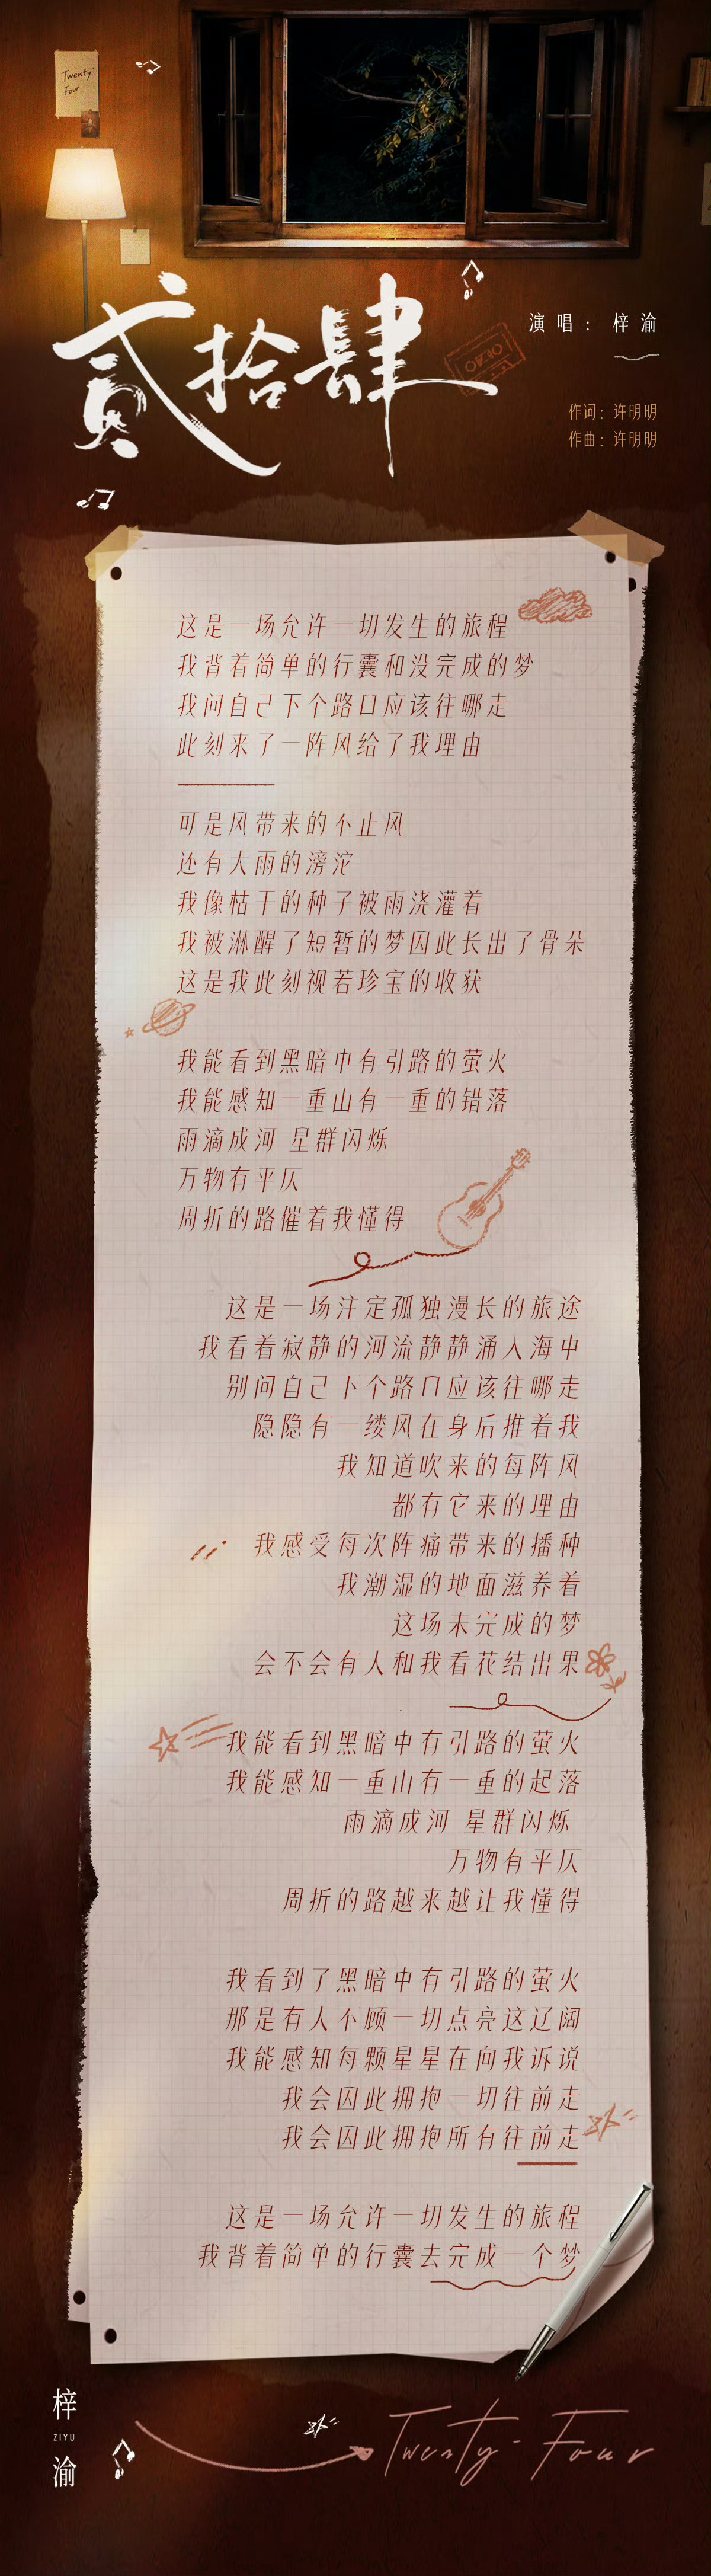 Twenty-
Four
贰拾肆
演唱：梓渝
作词：许明明
作曲：许明明
这是一场允许一切发生的旅程
我背着简单的行囊和没完成的梦
我问自己下个路口应该往哪走
此刻来了一阵风给了我理由
可是风带来的不止风
还有大雨的滂沱
我像枯干的种子被雨浇灌着
我被淋醒了短暂的梦因此长出了骨朵
这是我此刻视若珍宝的收获
我能看到黑暗中有引路的萤火
我能感知一重山有一重的错落
雨滴成河 星群闪烁
万物有平仄
周折的路催着我懂得
这是一场注定孤独漫长的旅途
我看着寂静的河流静静涌入海中
别问自己下个路口应该往哪走
隐隐有一缕风在身后推着我
我知道吹来的每阵风
都有它来的理由
我感受每次阵痛带来的播种
我潮湿的地面滋养着
这场未完成的梦
会不会有人和我看花结出果
我能看到黑暗中有引路的萤火
我能感知一重山有一重的起落
雨滴成河 星群闪烁
万物有平仄
周折的路越来越让我懂得
我看到了黑暗中有引路的萤火
那是有人不顾一切点亮这辽阔
我能感知每颗星星在向我诉说
我会因此拥抱一切往前走
我会因此拥抱所有往前走
这是一场允许一切发生的旅程
我背着简单的行囊去完成一个梦
梓
ZIYU
渝
Twenty-Four